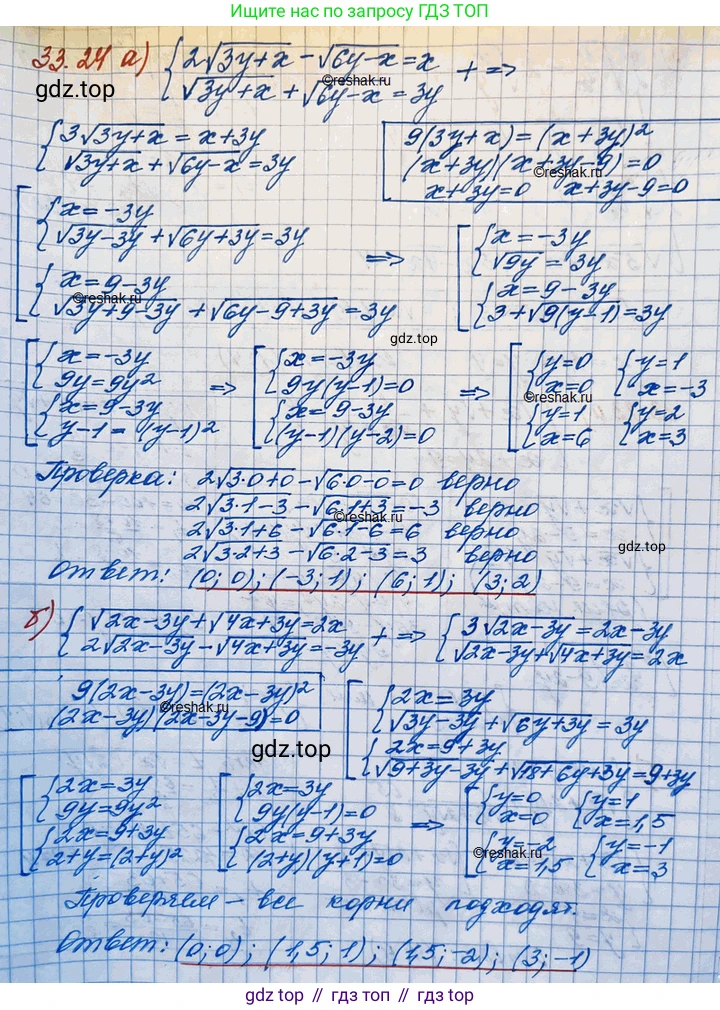 Ищите ответы по запросу ГДЗ ТОП
33.24 а) { 2√(3y+x) - √(6y-x) = x
√(3y+x) + √(6y-x) = 3y + ⇒
©reshak.ru
gdz.top
{ 3√(3y+x) = x+3y
√(3y+x) + √(6y-x) = 3y
9(3y+x) = (x+3y)²
(x+3y)(x+3y-9) = 0
©reshak.ru
x+3y=0 x+3y-9=0
[ { x=-3y
√(3y-3y) + √(6y+3y) = 3y
{ x=9-3y
√(3y+9-3y) + √(6y-9+3y) = 3y
©reshak.ru
⇒ [ { x=-3y
√(9y) = 3y
{ x=9-3y
3+√(9(y-1)) = 3y
gdz.top
[ { x=-3y
9y=9y²
{ x=9-3y
y-1=(y-1)²
⇒ [ { x=-3y
9y(y-1)=0
{ x=9-3y
(y-1)(y-2)=0
⇒ [ { y=0
x=0
{ y=1
x=-3
©reshak.ru
{ y=1
x=6
{ y=2
x=3
Проверка: 2√(3·0+0) - √(6·0-0) = 0 верно
2√(3·1-3) - √(6·1+3) = -3 верно
©reshak.ru
2√(3·1+6) - √(6·1-6) = 6 верно
2√(3·2+3) - √(6·2-3) = 3 верно
gdz.top
Ответ: (0; 0); (-3; 1); (6; 1); (3; 2)
б) { √(2x-3y) + √(4x+3y) = 2x
2√(2x-3y) - √(4x+3y) = -3y + ⇒
{ 3√(2x-3y) = 2x-3y
√(2x-3y) + √(4x+3y) = 2x
9(2x-3y) = (2x-3y)²
©reshak.ru
(2x-3y)(2x-3y-9) = 0
gdz.top
[ { 2x=3y
√(3y-3y) + √(6y+3y) = 3y
{ 2x=9+3y
√(9+3y-3y) + √(18+6y+3y) = 9+3y
[ { 2x=3y
9y=9y²
{ 2x=9+3y
2+y=(2+y)²
[ { 2x=3y
9y(y-1)=0
{ 2x=9+3y
(2+y)(y+1)=0
⇒ [ { y=0
x=0
{ y=1
x=1,5
{ y=-2
x=1,5
©reshak.ru
{ y=-1
x=3
Проверяем - все корни подходят.
Ответ: (0; 0); (1,5; 1); (1,5; -2); (3; -1)
gdz.top // гдз.топ // gdz.top